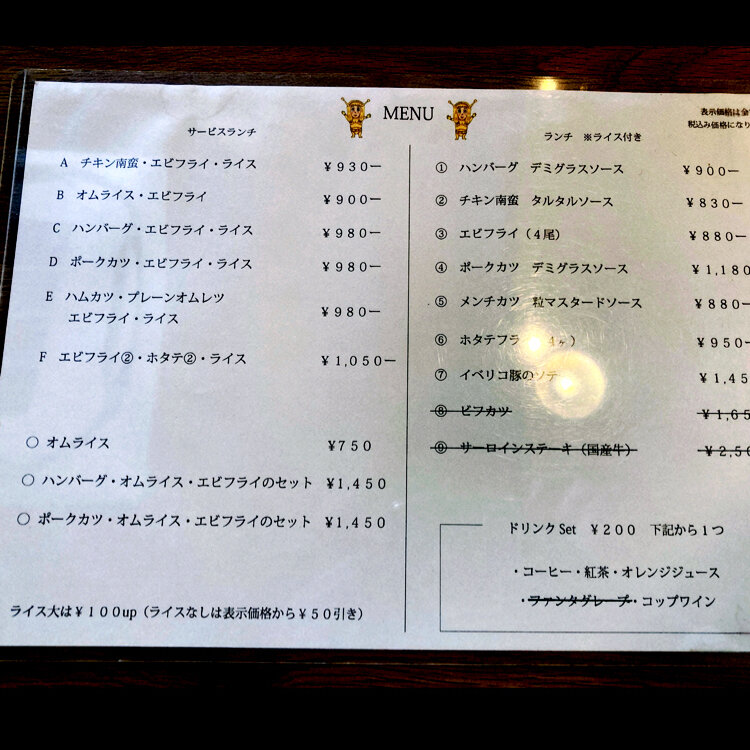 MENU
表示価格は
税込み価格にな
サービスランチ
A チキン南蛮・エビフライ・ライス ¥930ー
B オムライス・エビフライ ¥900ー
C ハンバーグ・エビフライ・ライス ¥980ー
D ポークカツ・エビフライ・ライス ¥980ー
E ハムカツ・プレーンオムレツ
エビフライ・ライス ¥980ー
F エビフライ②・ホタテ②・ライス ¥1,050ー
○ オムライス ¥750
○ ハンバーグ・オムライス・エビフライのセット ¥1,450
○ ポークカツ・オムライス・エビフライのセット ¥1,450
ライス大は¥100up（ライスなしは表示価格から¥50引き）
ランチ ※ライス付き
① ハンバーグ デミグラスソース ¥900ー
② チキン南蛮 タルタルソース ¥830ー
③ エビフライ（4尾） ¥880ー
④ ポークカツ デミグラスソース ¥1,180
⑤ メンチカツ 粒マスタードソース ¥880ー
⑥ ホタテフラ 4ヶ） ¥950ー
⑦ イベリコ豚のソテ ¥1,45
⑧ ビフカツ ¥1,65
⑨ サーロインステーキ（国産牛） ¥2,50
ドリンクSet ¥200 下記から1つ
・コーヒー・紅茶・オレンジジュース
・ファンタグレープ・コップワイン